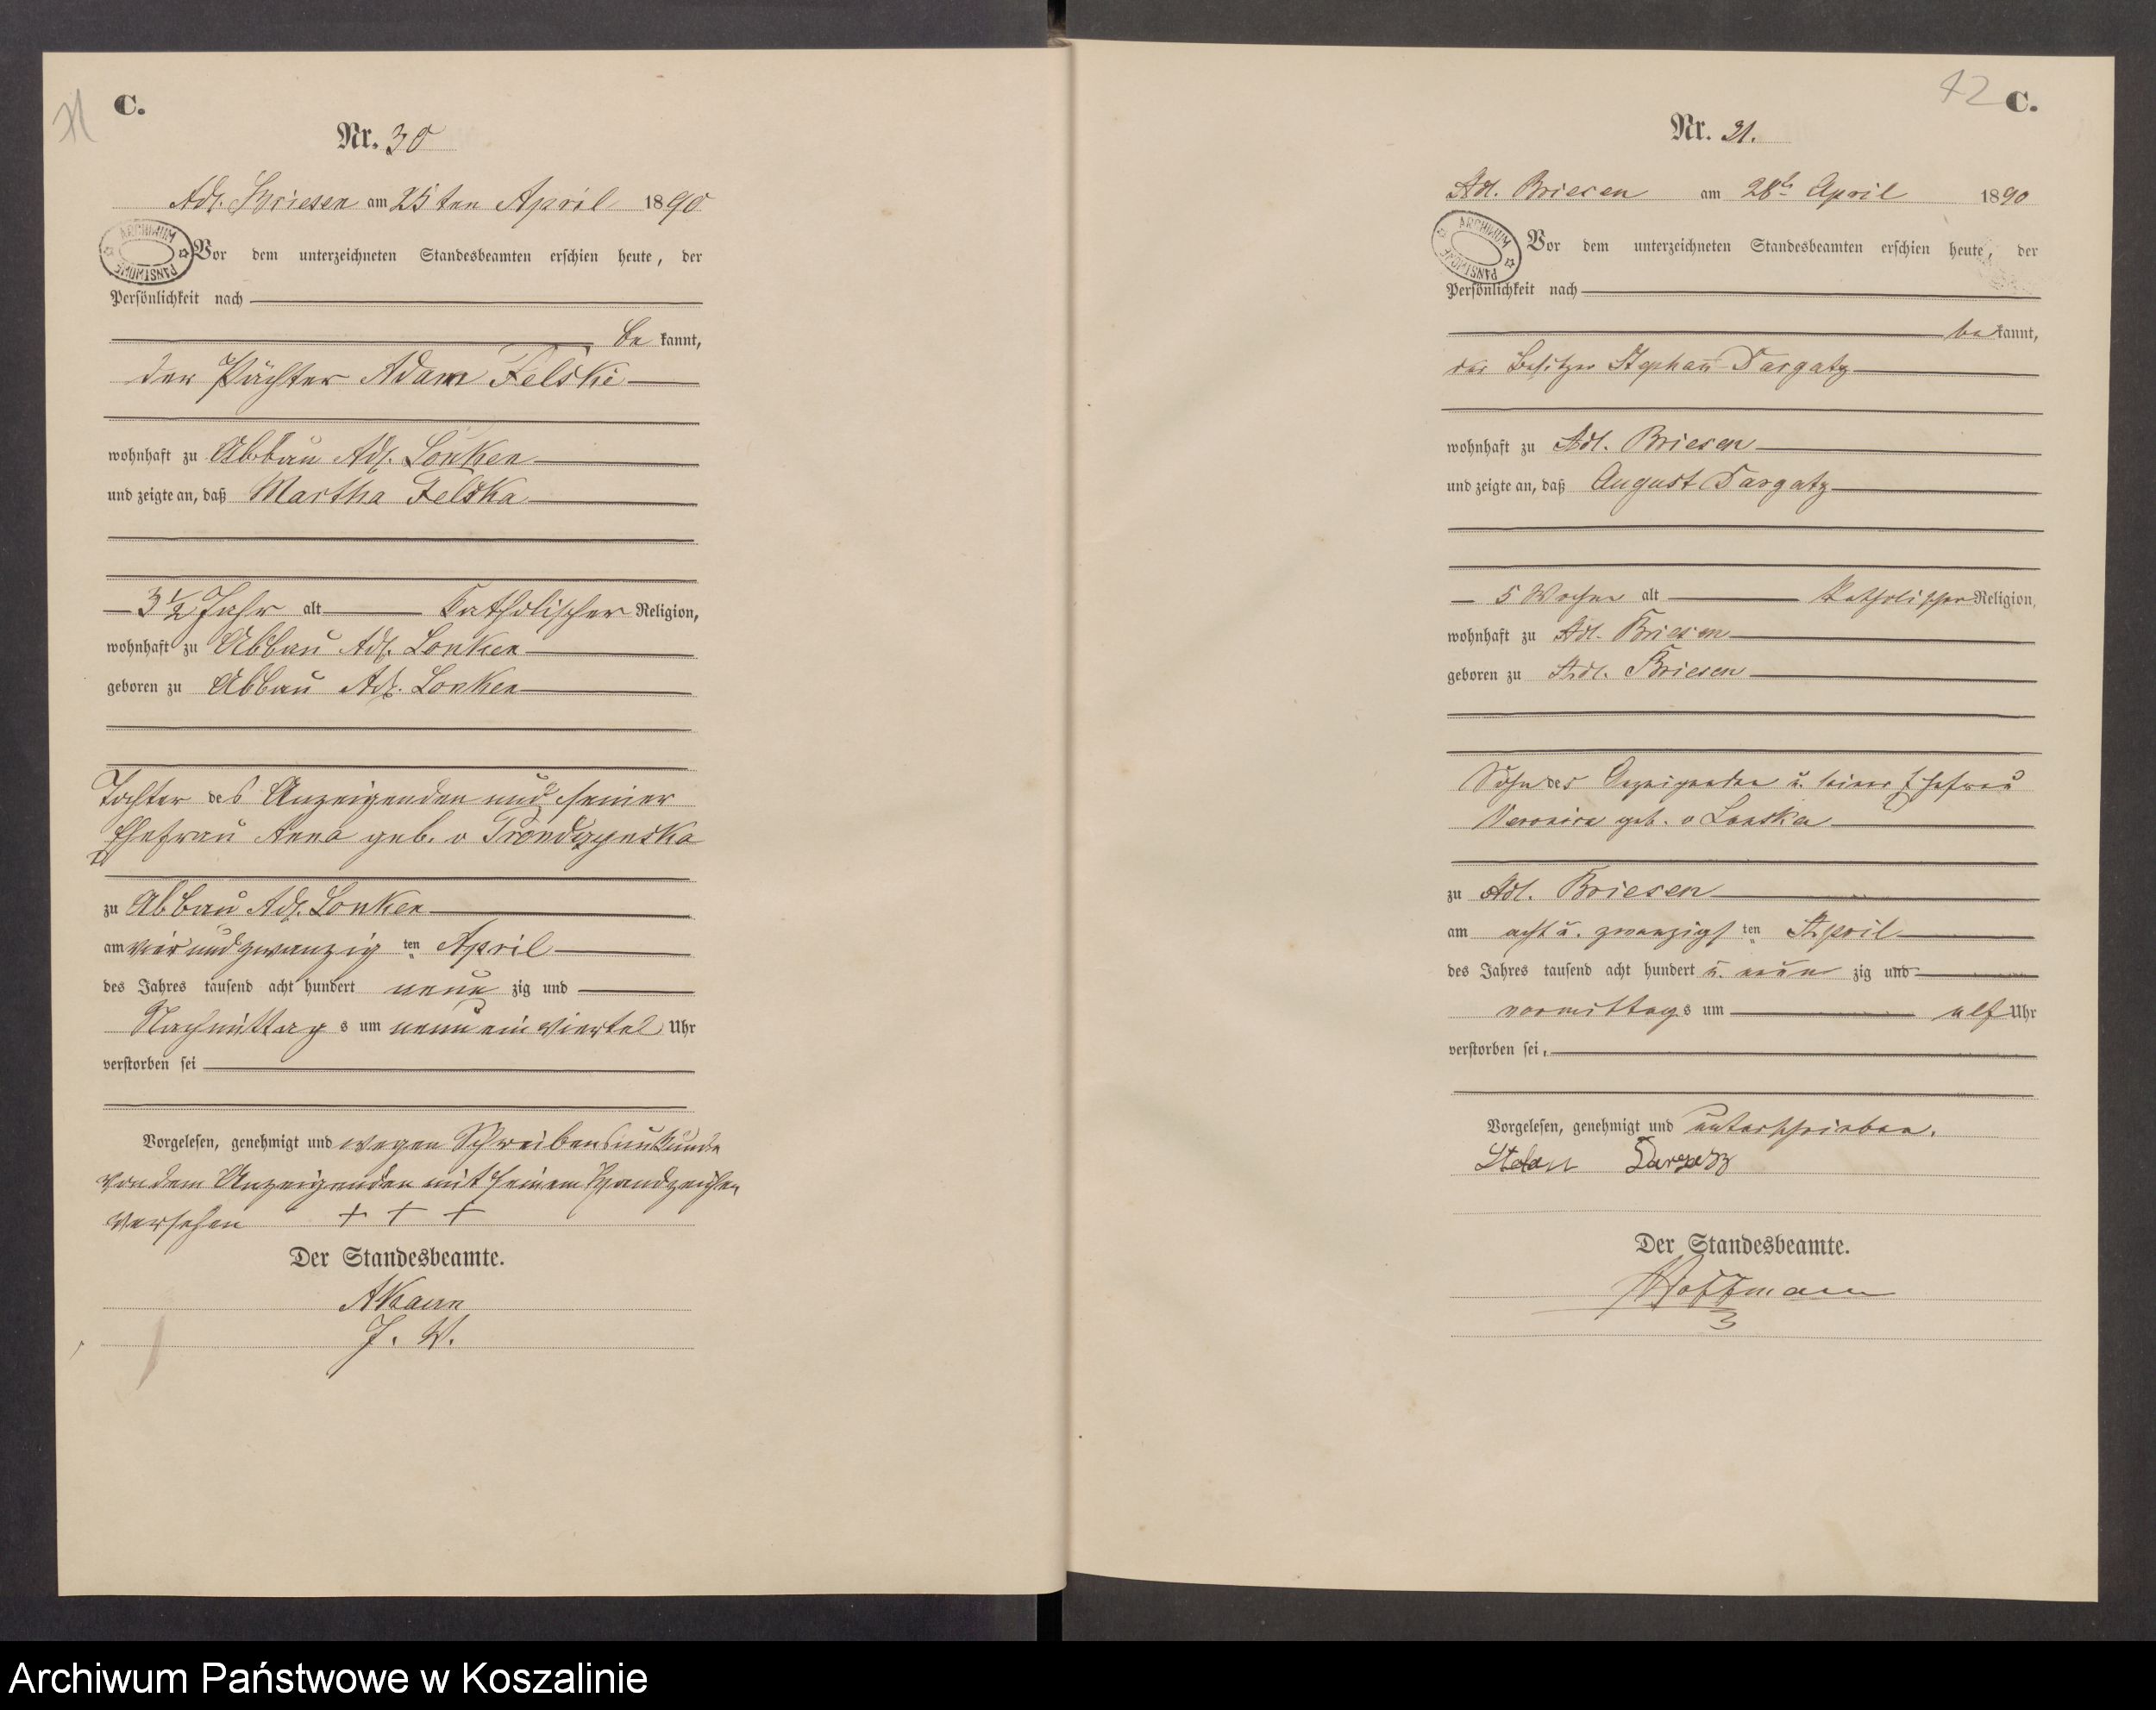 C.
Nr. 30
Adl. Briesen am 25ten April 1890
ARCHIWUM PAŃSTWOWE
Vor dem unterzeichneten Standesbeamten erschien heute, der
Persönlichkeit nach
be kannt,
der Pächter Adam Felski
wohnhaft zu Abbau Adl. Lonken
und zeigte an, daß Martha Felska
3½ Jahr alt Katholischer Religion,
wohnhaft zu Abbau Adl. Lonken
geboren zu Abbau Adl. Lonken
Tochter des Anzeigenden und seiner
Ehefrau Anna geb. v Prondzynska
zu Abbau Adl. Lonken
am vier und zwanzig ten April
des Jahres tausend acht hundert neun zig und
Nachmittag s um neun ein Viertel Uhr
verstorben sei
Vorgelesen, genehmigt und wegen Schreibensunkunde
von dem Anzeigenden mit seinem Handzeichen
versehen + + +
Der Standesbeamte.
J. V.
42 C.
Nr. 31.
Adl. Briesen am 28t April 1890
ARCHIWUM PAŃSTWOWE
Vor dem unterzeichneten Standesbeamten erschien heute, der
Persönlichkeit nach
be kannt,
der Besitzer Stephan Dargatz
wohnhaft zu Adl. Briesen
und zeigte an, daß August Dargatz
5 Wochen alt Katholischer Religion,
wohnhaft zu Adl. Briesen
geboren zu Adl. Briesen
Sohn des Anzeigenden u. seiner Ehefrau
Veronica geb. v Lonska
zu Adl. Briesen
am acht u. zwanzigs ten April
des Jahres tausend acht hundert u. neun zig und
vormittags um elf Uhr
verstorben sei,
Vorgelesen, genehmigt und unterschrieben.
Stefan
Der Standesbeamte.
Hoffmann
Archiwum Państwowe w Koszalinie